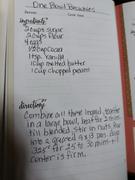 One Bowl Brownies
Ingredients
2 cups sugar
2 cups flour
4 eggs
1/2 cup cocoa
1 tsp. vanilla
1 cup melted butter
1 cup chopped pecans
directions
Combine all three ingred. together
in a large bowl, beat for 2 min
till blended. Stir in nuts. Pour
into a greased 9x13 pan. Bake
350° for 25 to 30 min. till
center is firm.